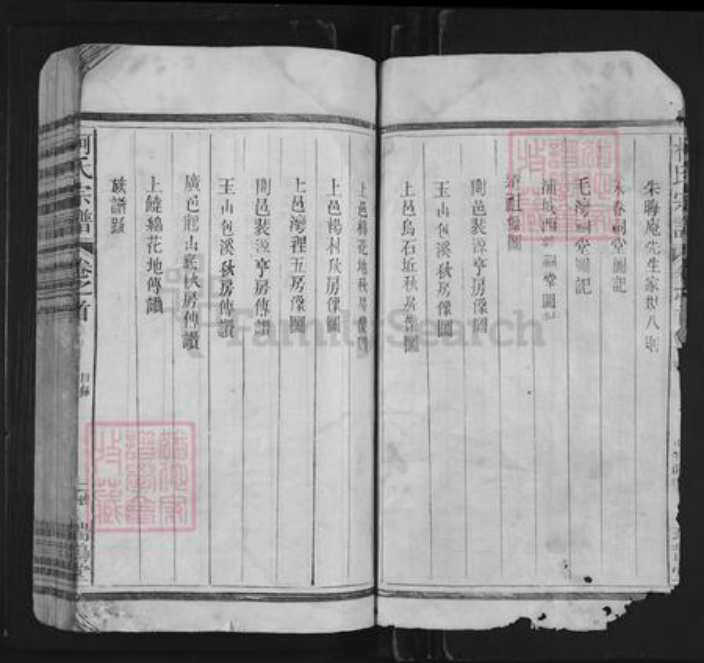 朱晦庵先生家訓八則
永春祠堂圖記
毛灣祠堂圖記
浦城西 祠堂圖記
社像圖
則邑裴源亨房像圖
玉山包溪秋房像圖
上邑烏石坵秋房像圖
上邑棉花地秋房像圖
上邑楊村秋房像圖
上邑灣裡五房像圖
則邑裴源亨房傳讚
玉山包溪秋房傳讚
廣邑 山底秋房傳讚
上饒綿花地傳讚
族譜跋
柯氏宗譜
卷之首
目錄
瑞鵲堂
FamilySearch